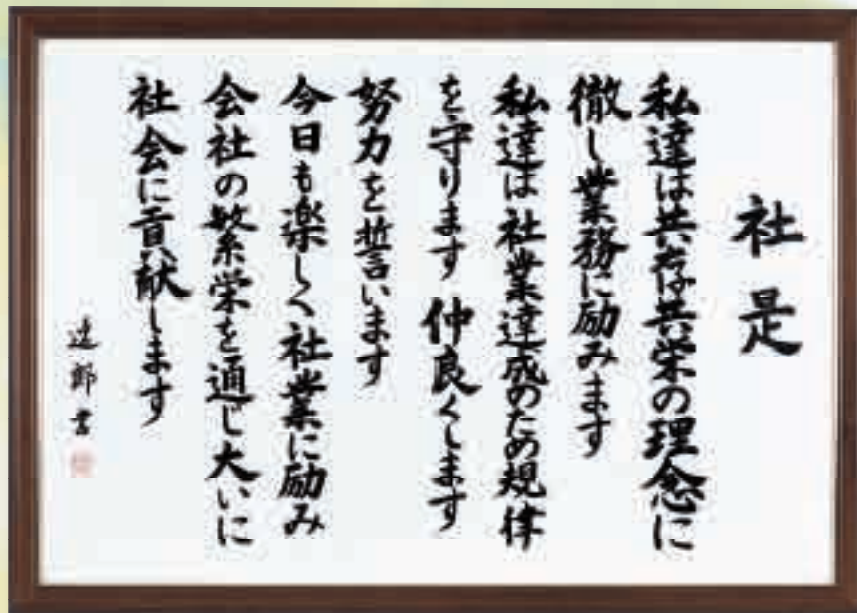 社是
私達は共存共栄の理念に
徹し業務に励みます
私達は社業達成のため規律
を守ります 仲良くします
努力を誓います
今日も楽しく社業に励み
会社の繁栄を通じ大いに
社会に貢献します
達郎書